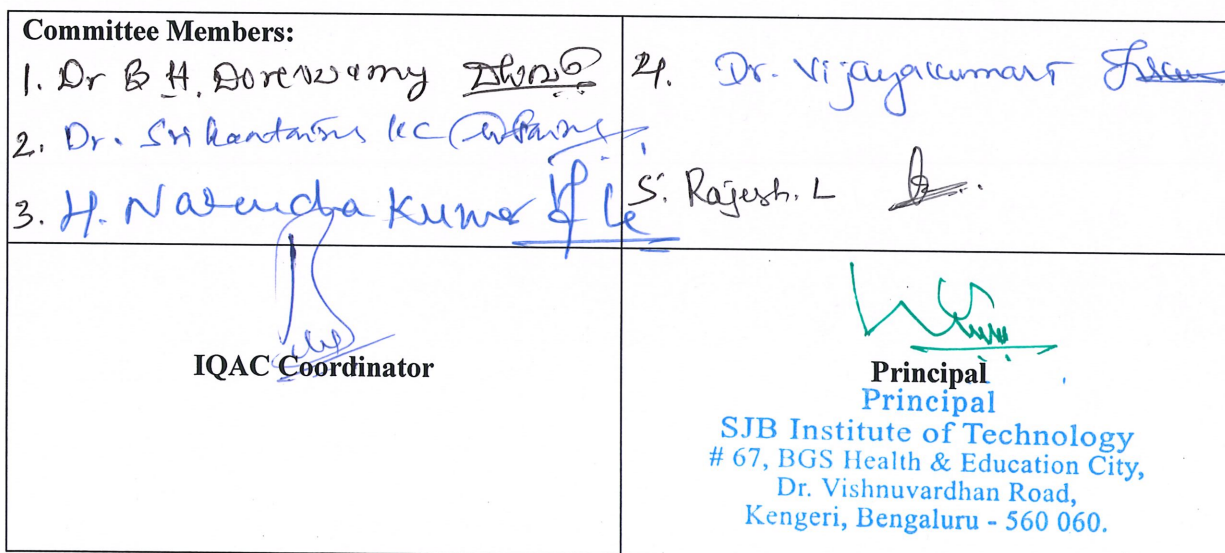 Committee Members:
1. Dr B H. Doreswamy
2. Dr. Srikantaswamy KC
3. H. Narendra Kumar
4. Dr. Vijayakumar T
5. Rajesh. L
IQAC Coordinator
Principal
Principal
SJB Institute of Technology
# 67, BGS Health & Education City,
Dr. Vishnuvardhan Road,
Kengeri, Bengaluru - 560 060.